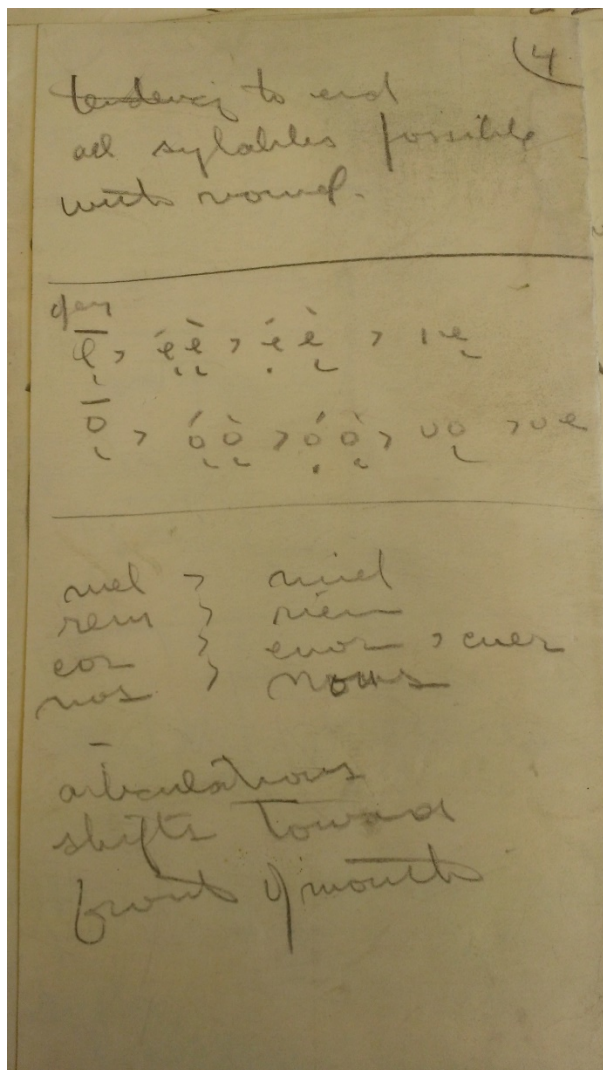 4
tendency to end
all sylables possible
with vowel.
open
ę̄ > ę́ę̀ > ẹ́ę̀ > ıę
ǭ > ǫ́ǫ̀ > ọ́ǫ̀ > uǫ > ue
mel > miel
rem > rien
cor > cuor > cuer
nos > nous
articulations
shifts toward
front of mouth